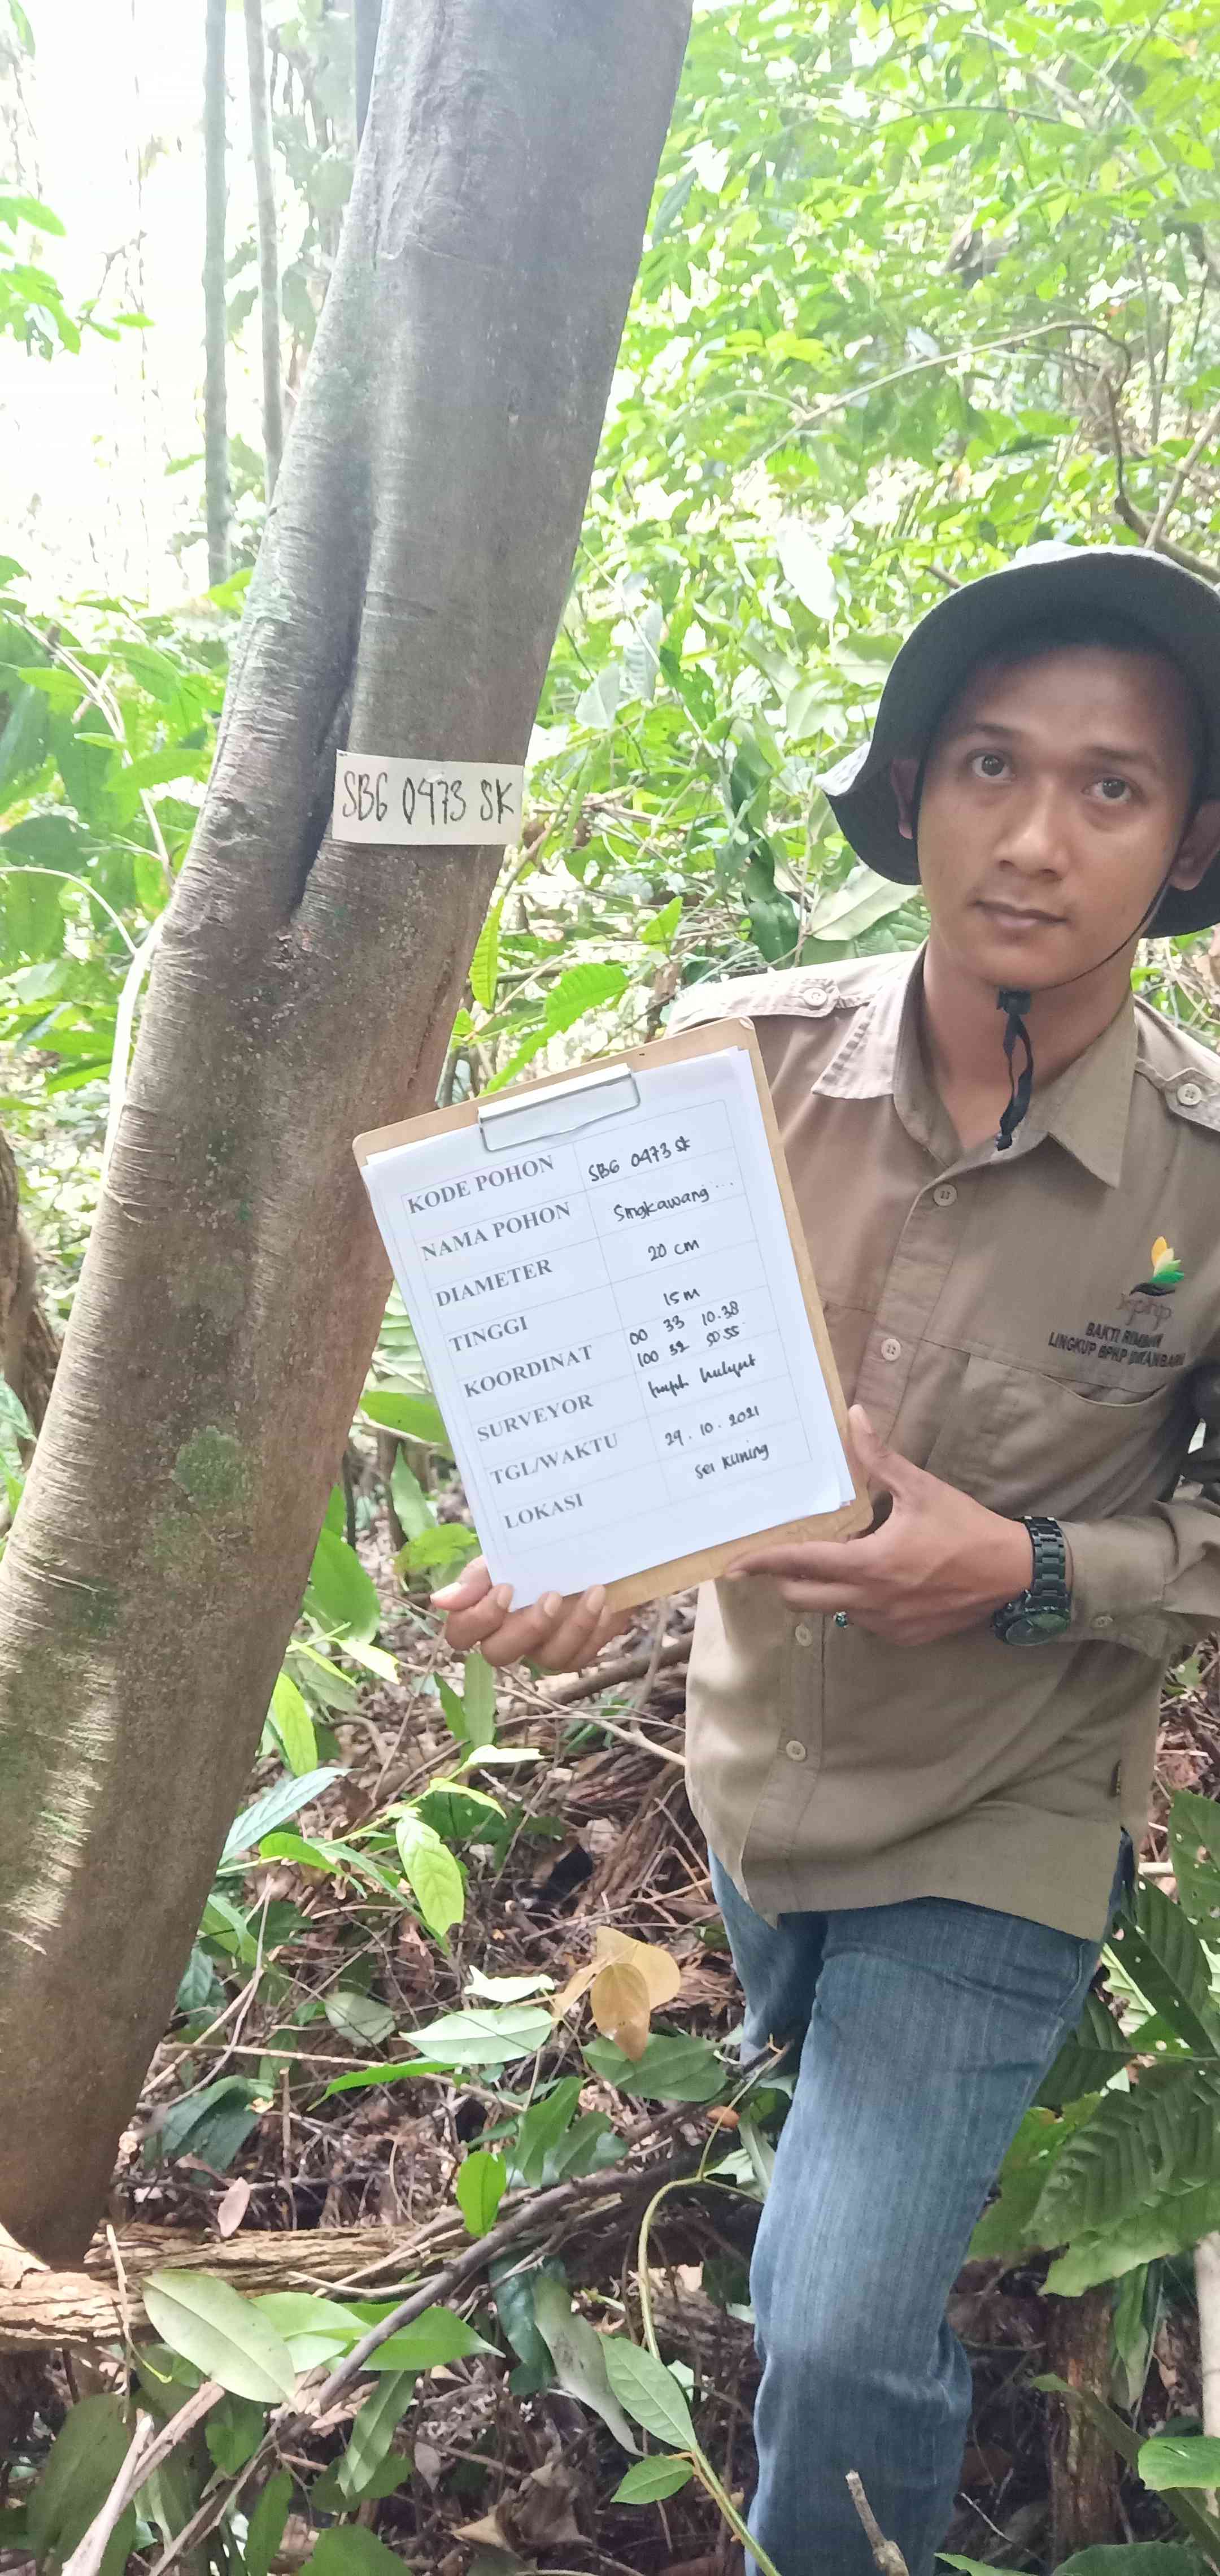 SBG 0473 SK
KODE POHON SBG 0473 SK
NAMA POHON Singkawang ...
DIAMETER 20 cm
TINGGI 15 M
KOORDINAT 00 33 10.38
100 32 50.55
SURVEYOR
TGL/WAKTU 29.10.2021
LOKASI Sei Kuning
BAKTI RIMBAWAN
LINGKUP BPHP